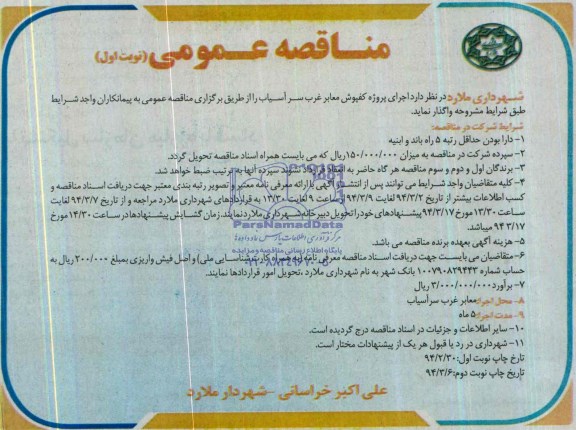 مناقصه عمومی (نوبت اول)
شهرداری ملارد در نظر دارد اجرای پروژه کفپوش معابر غرب سر آسیاب را از طریق برگزاری مناقصه عمومی به پیمانکاران واجد شرایط
طبق شرایط مشروحه واگذار نماید.
شرایط شرکت در مناقصه:
۱- دارا بودن حداقل رتبه ۵ راه باند و ابنیه
۲- سپرده شرکت در مناقصه به میزان ۱۵۰/۰۰۰/۰۰۰ ریال که می بایست همراه اسناد مناقصه تحویل گردد.
۳- برندگان اول و دوم و سوم مناقصه هر گاه حاضر به انعقاد قرارداد نشوند سپرده آنها به ترتیب ضبط خواهد شد.
۴- کلیه متقاضیان واجد شرایط می توانند پس از انتشار آگهی با ارائه معرفی نامه معتبر و تصویر رتبه بندی معتبر جهت دریافت اسناد مناقصه و
کسب اطلاعات بیشتر از تاریخ ۹۴/۳/۲ لغایت ۹۴/۳/۹ ساعت ۹ لغایت ۱۳/۳۰ به قراردادهای شهرداری ملارد مراجعه و از تاریخ ۹۴/۳/۷ لغایت
ساعت ۱۳/۳۰ مورخ ۹۴/۳/۱۷ پیشنهادهای خود را تحویل دبیرخانه شهرداری ملارد نمایند. زمان گشایش پیشنهادها در ساعت ۱۴/۳۰ مورخ
۹۴/۳/۱۷ میباشد.
۵- هزینه آگهی بعهده برنده مناقصه می باشد.
۶- متقاضیان می بایست جهت دریافت اسناد مناقصه معرفی نامه (به همراه کارت شناسایی ملی) و اصل فیش واریزی بمبلغ ۲۰۰/۰۰۰ ریال به
حساب شماره ۱۰۰۷۹۰۸۲۹۴۴۳ بانک شهر به نام شهرداری ملارد ،تحویل امور قراردادها نمایند.
۷- برآورد ۳/۰۰۰/۰۰۰/۰۰۰ ریال
۸- محل اجرا: معابر غرب سرآسیاب
۹- مدت اجرا: ۵ ماه
۱۰- سایر اطلاعات و جزئیات در اسناد مناقصه درج گردیده است.
۱۱- شهرداری در رد یا قبول هر یک از پیشنهادات مختار است.
تاریخ چاپ نوبت اول: ۹۴/۲/۳۰
تاریخ چاپ نوبت دوم: ۹۴/۳/۶
علی اکبر خراسانی - شهردار ملارد
ParsNamadData